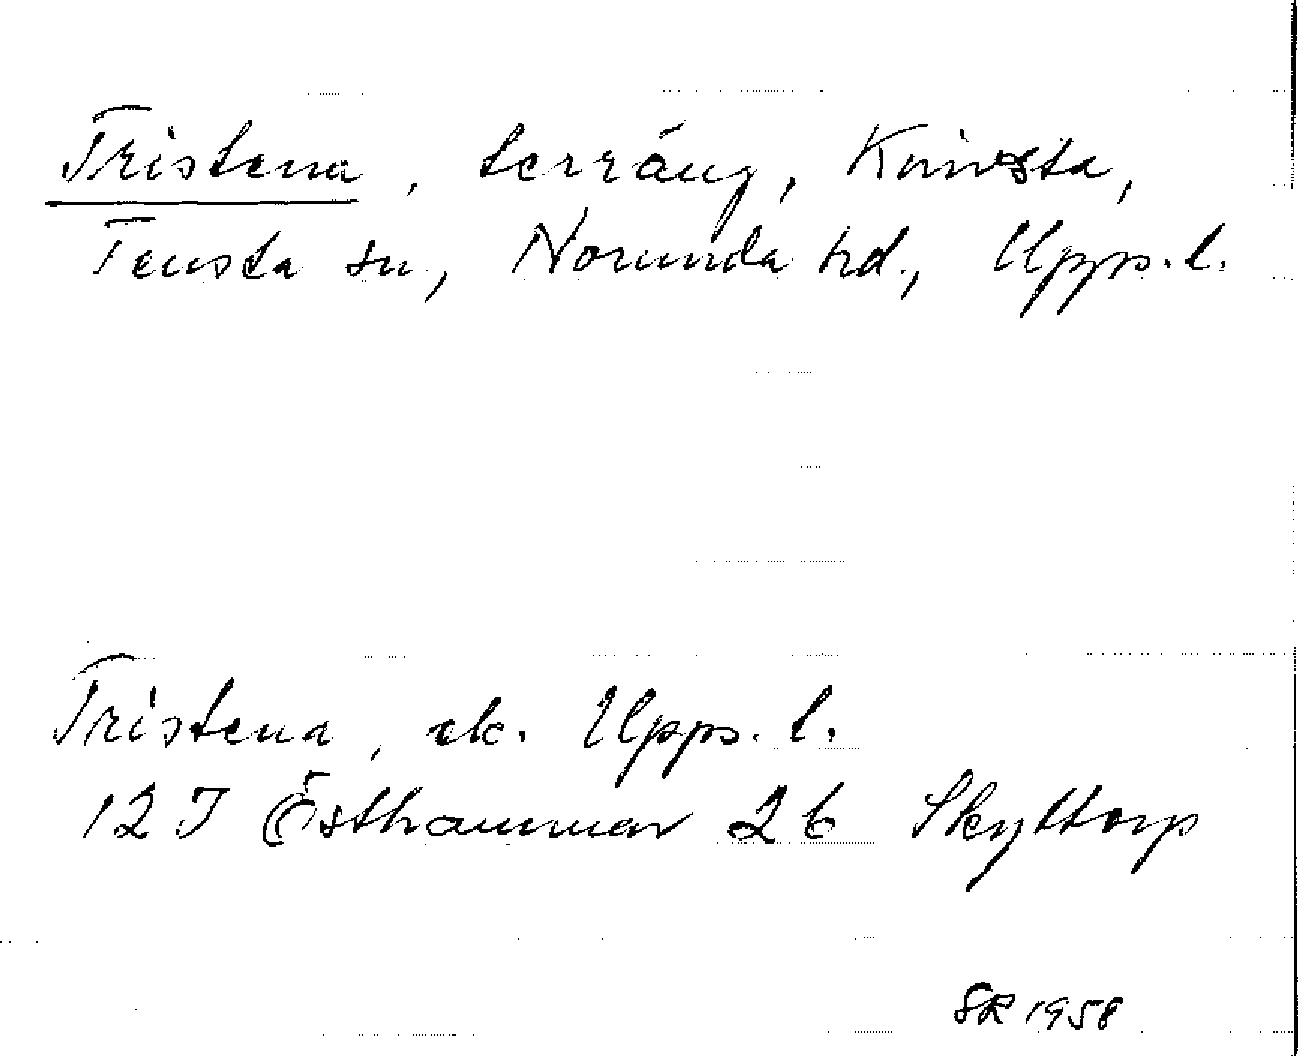 Tristena, terräng, Knivsta,
Tensta sn, Norunda hd., Upps. l.
Tristena, ek. Upps. l.
12 I Östhammar 2b Skyttorp
SR 1958